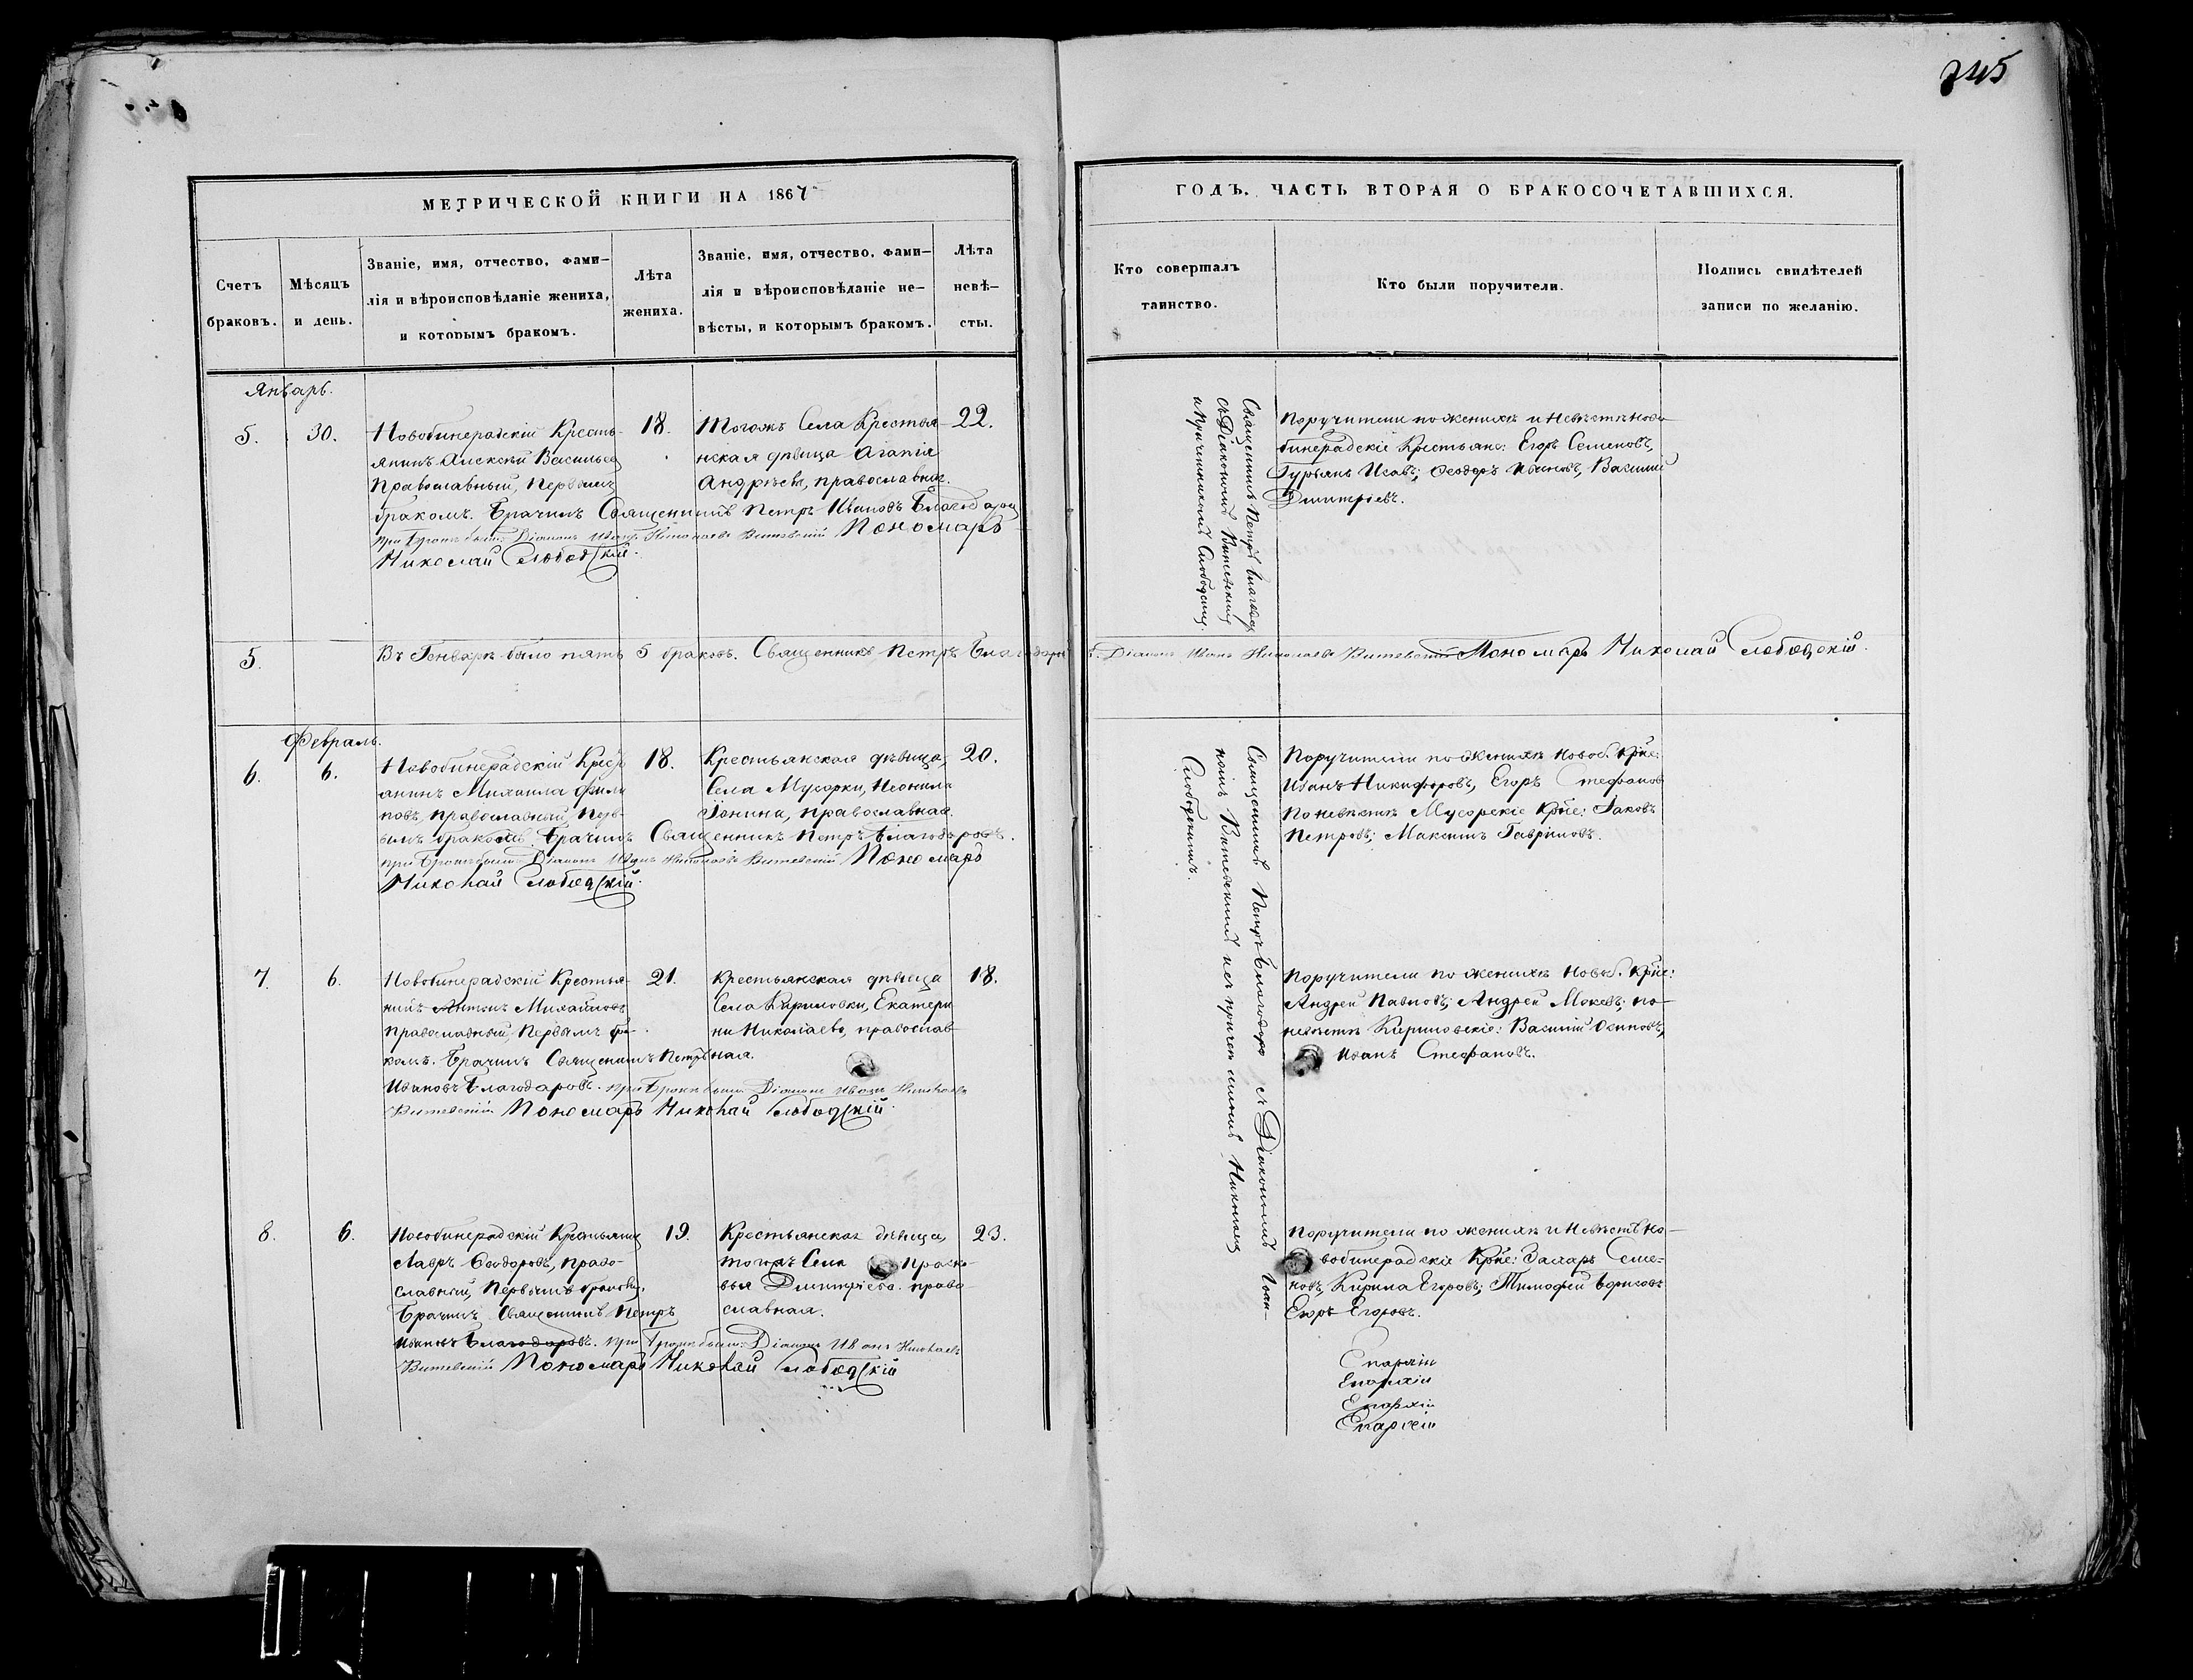 245
МЕТРИЧЕСКОЙ КНИГИ НА 1867
ГОДЪ. ЧАСТЬ ВТОРАЯ О БРАКОСОЧЕТАВШИХСЯ.
Счетъ
браковъ.
Мѣсяцъ
и день.
Званіе, имя, отчество, фами–
лія и вѣроисповѣданіе жениха,
и которымъ бракомъ.
Лѣта
жениха.
Званіе, имя, отчество, фами–
лія и вѣроисповѣданіе не–
вѣсты, и которымъ бракомъ.
Лѣта
невѣ–
сты.
Кто совершалъ
таинство.
Кто были поручители.
Подпись свидѣтелей
записи по желанію.
Январь.
5.
30.
Новобинерадскій Кресть-
янинъ Алексѣй Васильев
Православный, Первымъ
бракомъ. Брачилъ Священникъ Петръ Ивановъ Благодаров
при Бракѣ были: Діаконъ Иванъ Николаевъ Витевскій Пономарь
Николай Слободскій.
18.
Тогожъ Села Крестья-
нская дѣвица Агапія
Андрѣева, православная.
22.
Священникъ Петръ Благодар
съ Діакономъ Витевским
и Причетникомъ Слободским.
Поручители по женихѣ и Невѣстѣ Ново
бинерадскіе Крестьяне: Егоръ Семеновъ,
Гурьянъ Исавъ; Ѳеодоръ Ивановъ, Василій
Димитріевъ.
5.
Въ Генварѣ было пять 5 браковъ. Священникъ Петръ Благодаровъ. Діаконъ Иванъ Николаевъ Витевскій Пономарь Николай Слободскій.
Февраль.
6.
6.
Новобинерадскій Крест
янинъ Михаила Фили
повъ, православный, Пер-
вымъ бракомъ. Брачилъ Священникъ Петръ Благодаровъ.
при Бракѣ были: Діаконъ Иванъ Николаевъ Витевскій Пономарь
Николай Слободскій.
18.
Крестьянская дѣвица,
Села Мусорки, Неонила
Іонина, православная.
20.
Священникъ Петръ Благодаро съ Діакономъ Іоан-
номъ Витевскимъ и съ причетникомъ Николаем
Слободскимъ.
Поручители по Женихѣ Новоб. Крне:
Иванъ Никифоровъ, Егоръ Стефанов
По невѣстѣ Мусорскіе Крне: Іаковъ
Петровъ; Максимъ Гавріиловъ.
7.
6.
Новобинерадскій Крестья-
нинъ Антонъ Михайловъ
православный, Первымъ бра-
комъ. Брачилъ Священникъ Петръ
Ивановъ Благодаровъ. при Бракѣ были Діаконъ Иванъ Николаевъ
Витевскій Пономарь Николай Слободскій.
21.
Крестьянская дѣвица
Села Кириловки, Екатери
на Николаева, православ-
ная.
18.
Поручители по женихѣ Новоб. Крне:
Андрей Павловъ; Андрей Мокевъ; по-
невѣстѣ Кириловскіе: Василій Осиповъ,
Иванъ Стефановъ.
8.
6.
Новобинерадскій Крестьянин
Лавръ Ѳеодоровъ, право-
славный, Первымъ бракомъ.
Брачилъ Священникъ Петръ
Ивановъ Благодаровъ. при Бракѣ были: Діаконъ Иванъ Николаевъ
Витевскій Пономарь Николай Слободскій
19.
Крестьянская дѣвица,
тогожъ Села Праско-
вья Димитріева. право
славная.
23.
Поручители по женихѣ и Невѣстѣ Но-
вобинерадскіе Крне: Захаръ Семе-
новъ, Кирила Егоровъ; Тимофей Борисовъ
Егоръ Егоровъ.
Епархіи
Епархіи
Епархіи
Епархіи